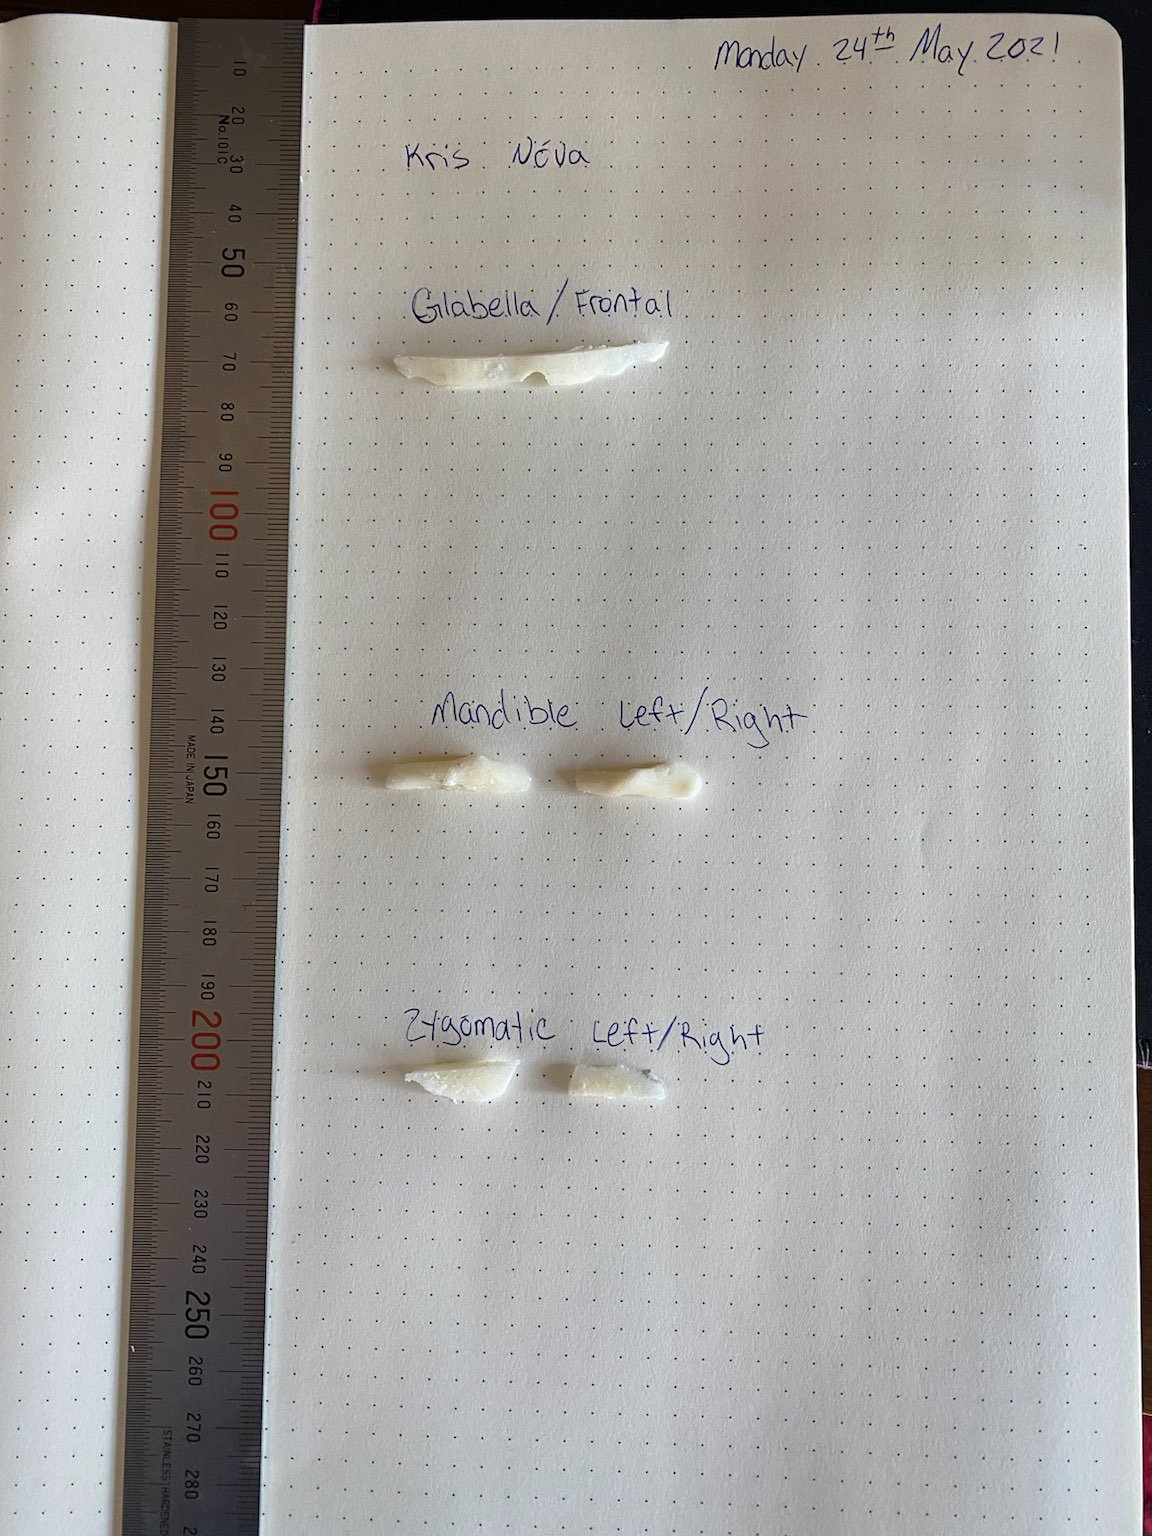 Monday 24th May 2021
Kris Nóva
Glabella/Frontal
Mandible Left/Right
Zygomatic Left/Right
10
20
No.101C
30
40
50
60
70
80
90
100
110
120
130
140
MADE IN JAPAN
150
160
170
180
190
200
210
220
230
240
250
260
270
STAINLESS HARDENED
280
2